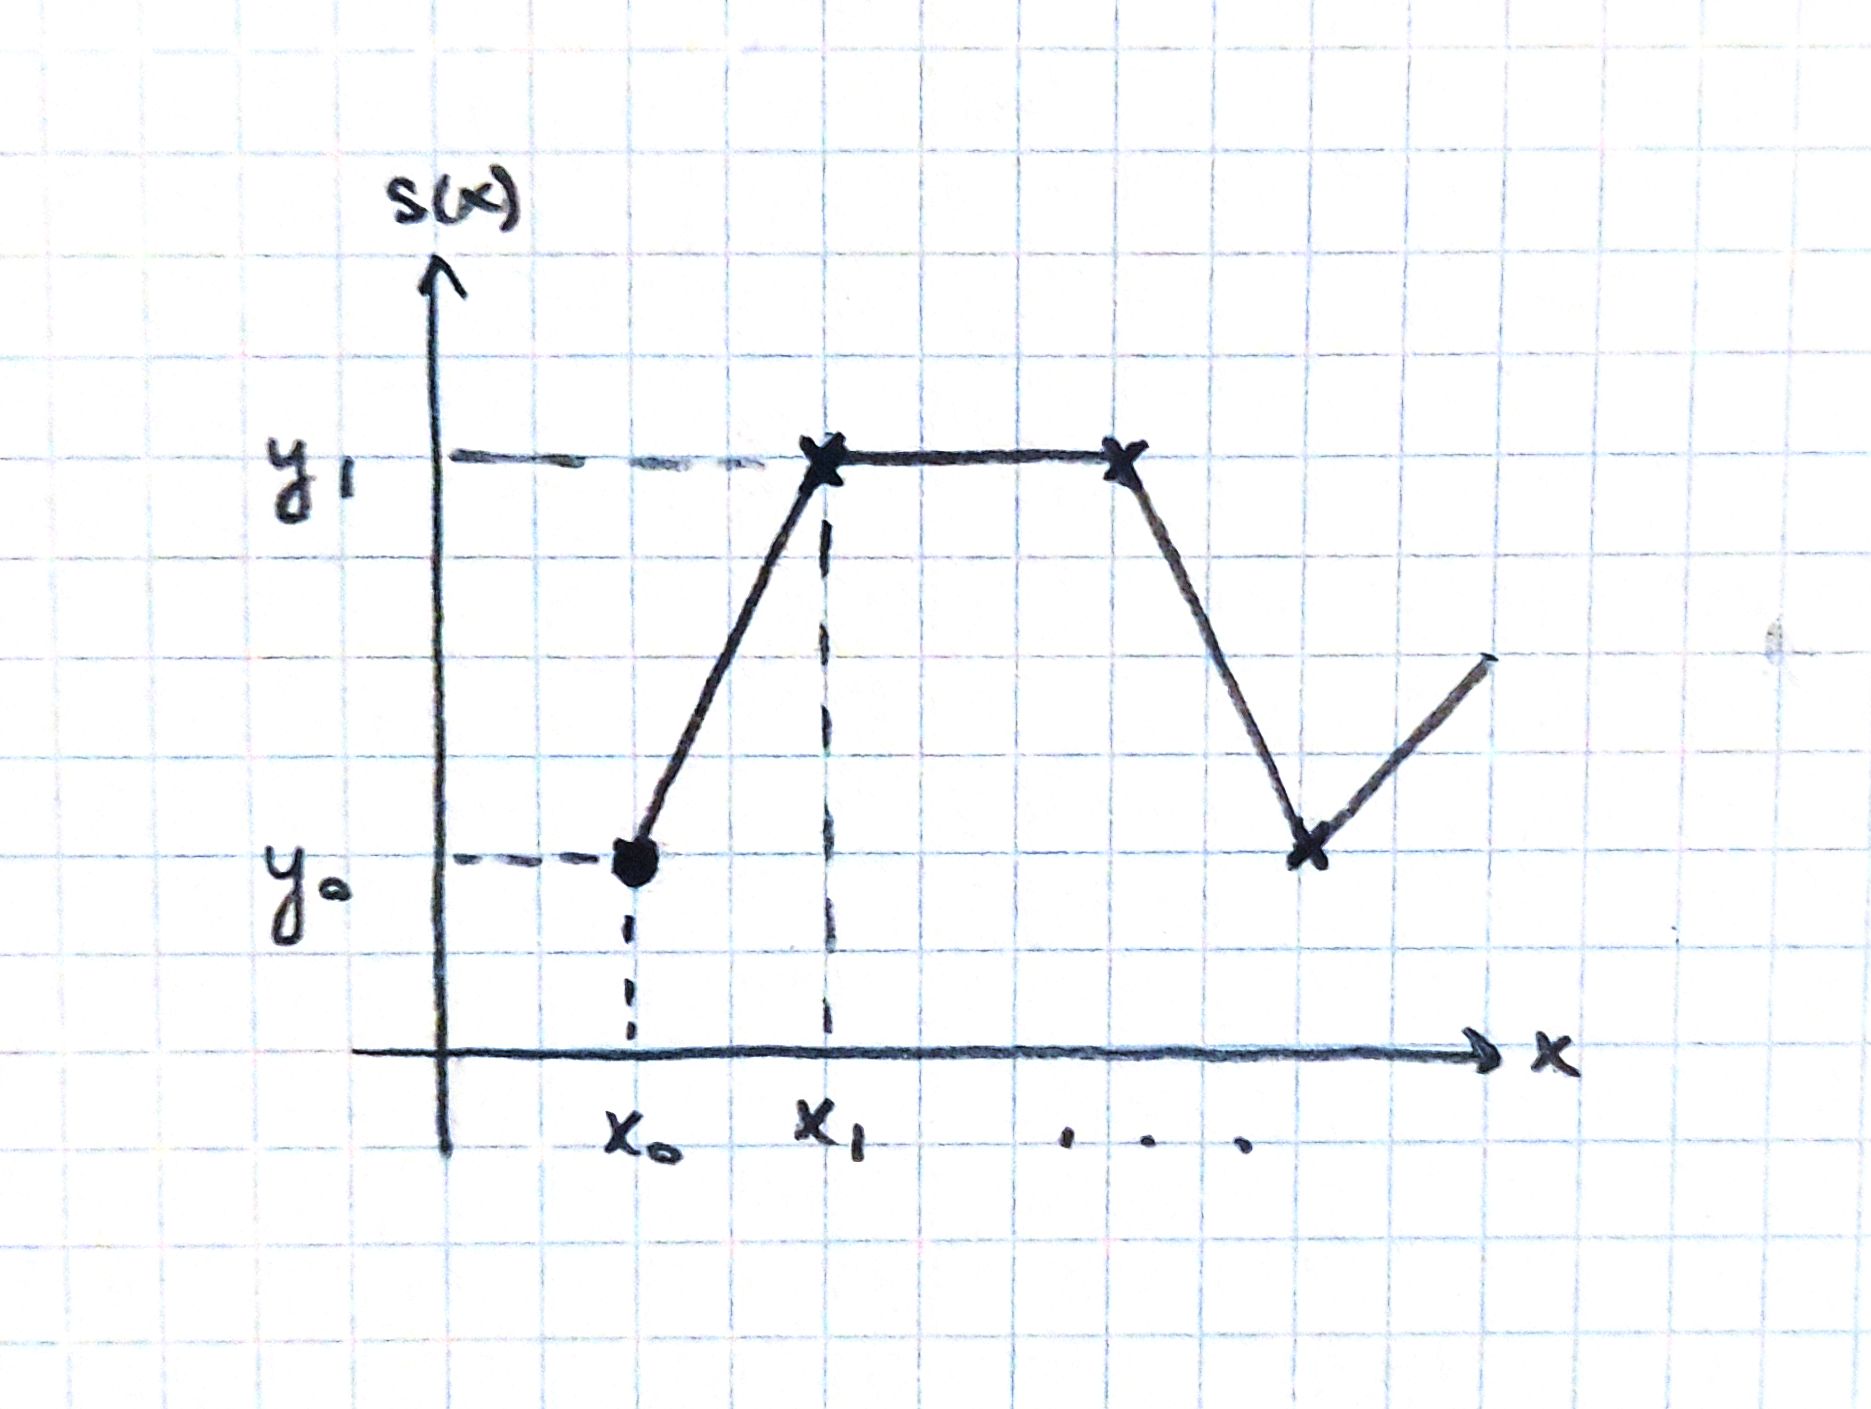 s(x)
y₁
y₀
x
x₀ x₁ . . .